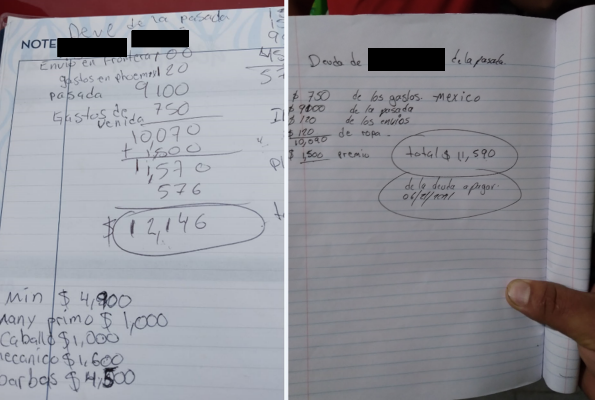 NOTE
Deve de la pasada
Envio en Frontera 100
gastos en phoenix 120
pasada 9100
Gastos de venida 750
10,070
+ 1,500
11,570
576
$ 12,146
Min $ 4,900
many primo $ 1,000
Caballo $ 1,000
mecanico $ 1,600
barbas $ 4,500
Deuda de de la pasada.
$ 750 de los gastos. mexico
$ 9100 de la pasada
$ 120 de los envios
$ 120 de ropa.
10,090
$ 1,500 premio
total $ 11,590
de la deuda a pagar.